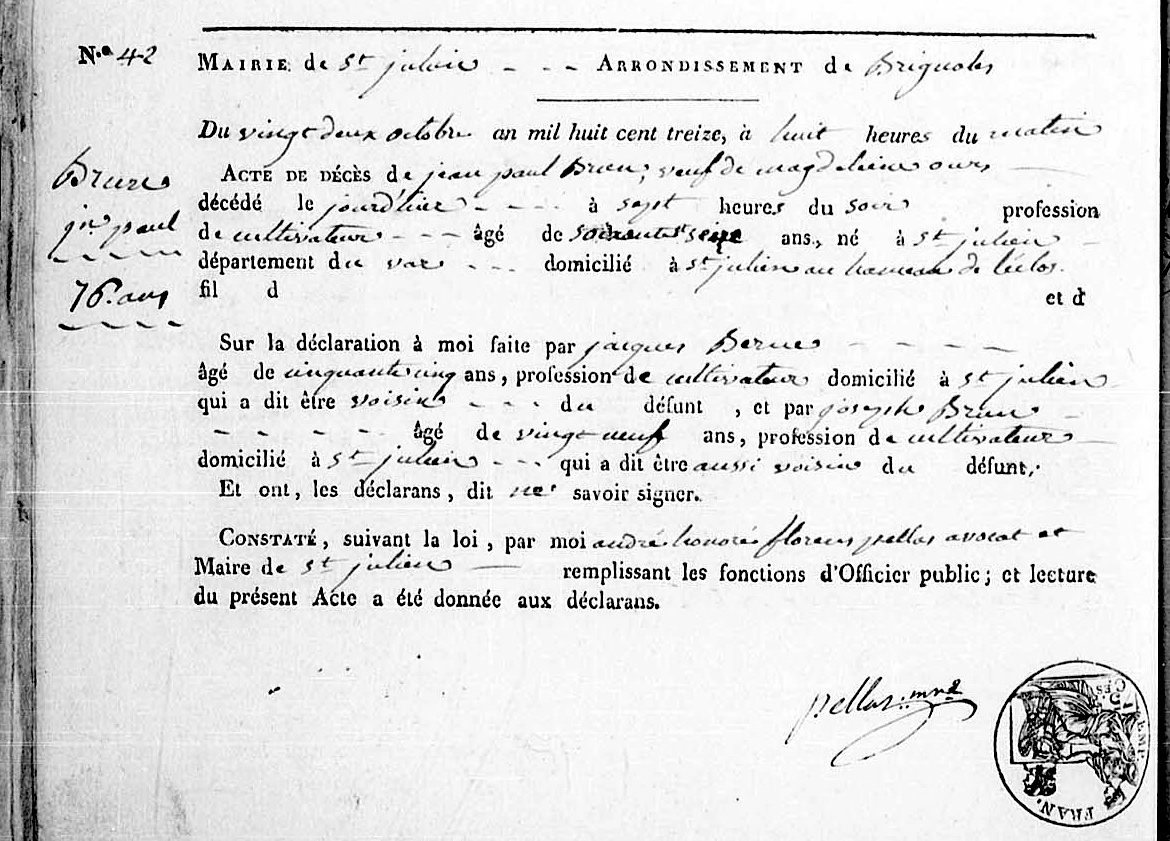 N.º 42
MAIRIE de St julien - - - ARRONDISSEMENT de Brignoles
Du vingt deux octobre an mil huit cent treize, à huit heures du matin
Brun
jn paul
76 ans
ACTE DE DÉCÈS de jean paul Brun, veuf de magdeleine ours
décédé le jourd'hier - - - - à sept heures du soir profession
de cultivateur - - - âgé de soixante et seize ans, né à St julien
département du var - - - domicilié à St julien au hameau de l'éclos.
fil d et d
Sur la déclaration à moi faite par jacques Berne - - - -
âgé de cinquante cinq ans, profession de cultivateur domicilié à St julien
qui a dit être voisin - - - du défunt , et par joseph Brun -
- - - - âgé de vingt neuf ans, profession de cultivateur
domicilié à St julien - - - qui a dit être aussi voisin du défunt,
Et ont, les déclarans, dit ne savoir signer.
CONSTATÉ, suivant la loi, par moi andré honoré florens pellas avocat et
Maire de St julien — remplissant les fonctions d'Officier public; et lecture
du présent Acte a été donnée aux déclarans.
pellas
FRAN.
EMP.